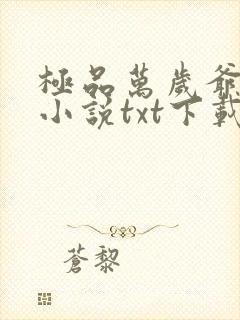 極品萬歲爺
小說txt下載
蒼黎